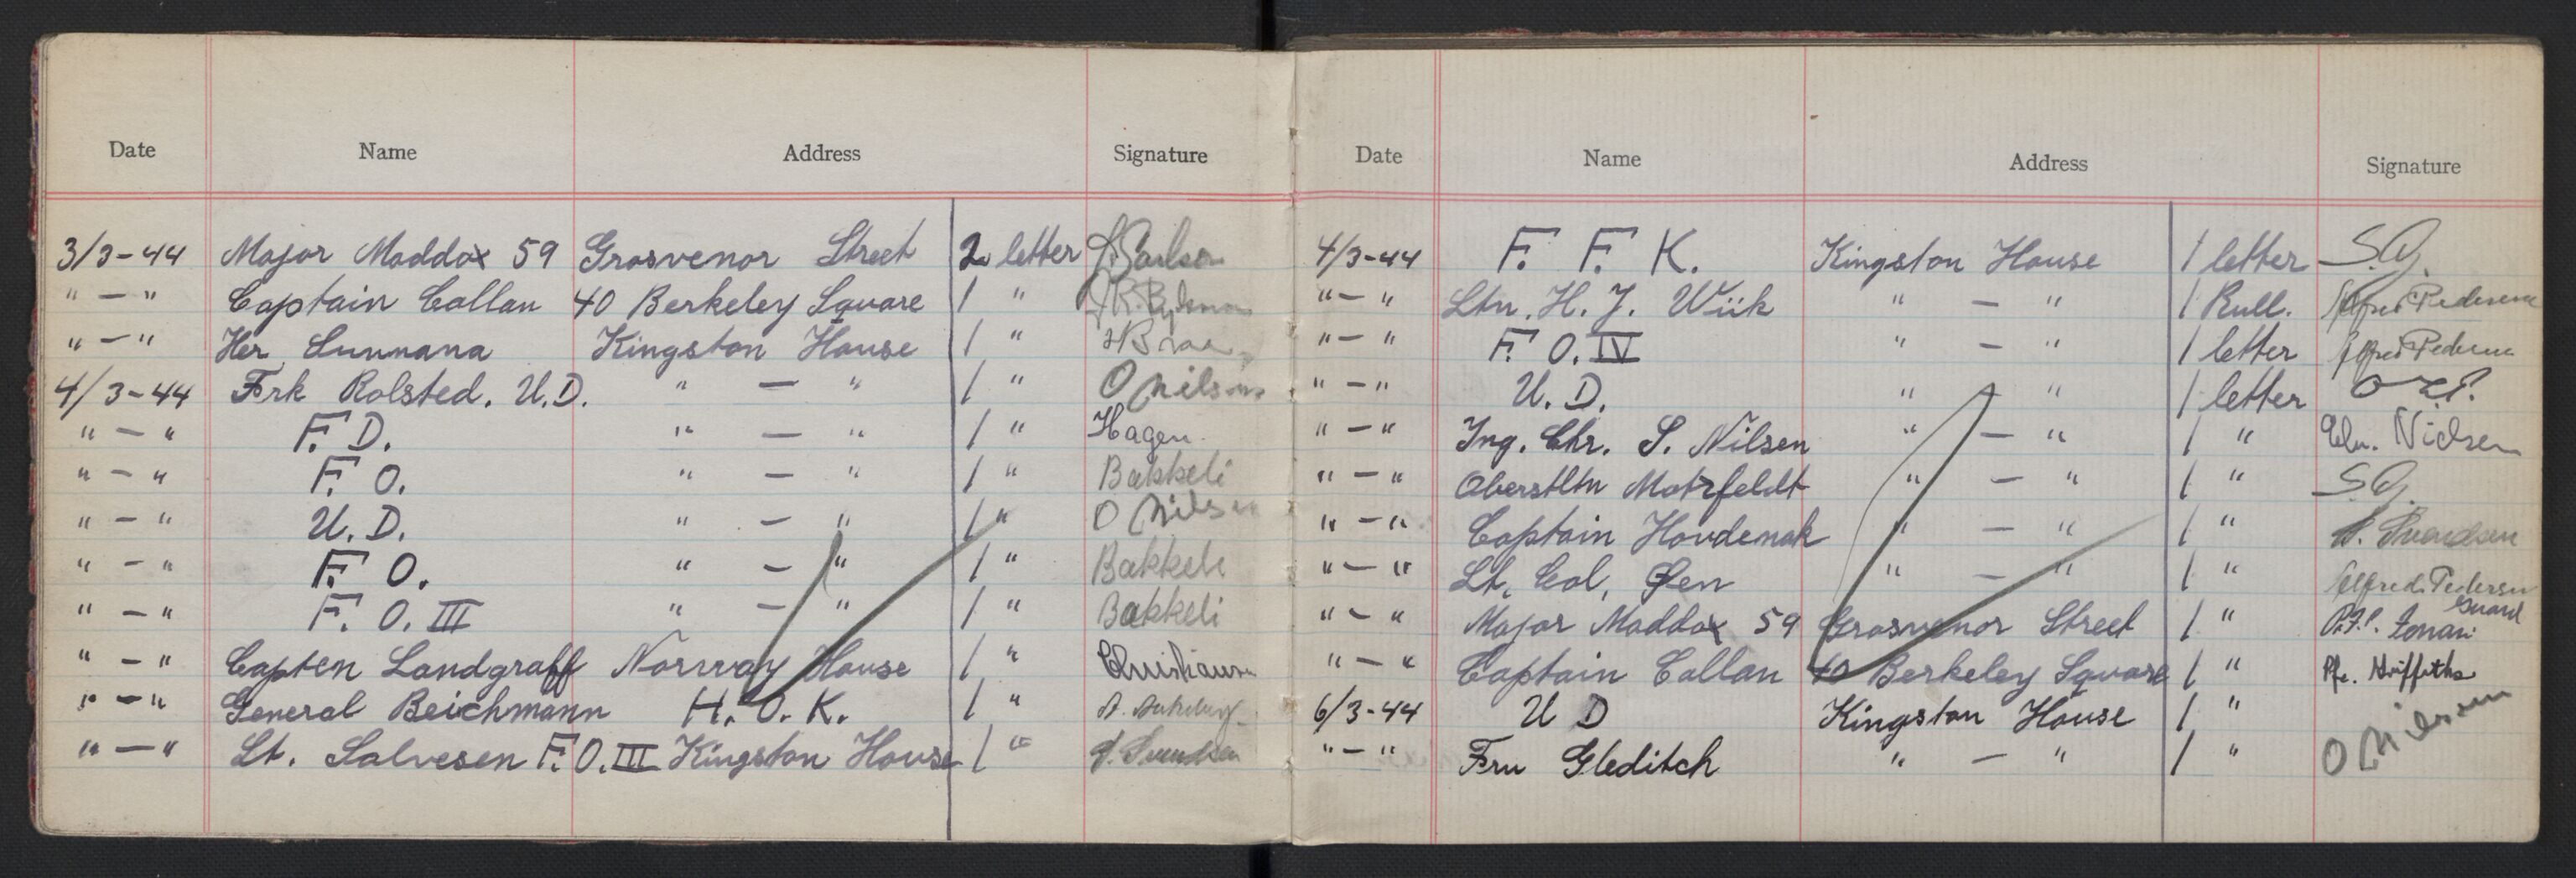 Date Name Address Signature
3/3-44 Major Maddox 59 Grosvenor Street 2 letter
" — " Captain Callan 40 Berkeley Square 1 "
" — " Her Sunmana Kingston House 1 "
4/3-44 Frk Rolsted. U.D. " — " 1 " O Nilsen
" — " F. D. " — " 1 " Hagen
" — " F. O. " — " 1 " Bakkeli
" — " U. D. " — " 1 " O Nilsen
" — " F. O. " — " 1 " Bakkeli
" — " F. O. III " — " 1 " Bakkeli
" — " Capten Landgraff Norway House 1 " Christiansen
" — " General Beichmann H. O. K. 1 "
" — " Lt. Salvesen F. O. III Kingston House 1 " Svendsen
Date Name Address Signature
4/3-44 F. F. K. Kingston House 1 letter S.G.
" — " Ltn. H. J. Wiik " — " 1 Rull. Alfred Pedersen
" — " F. O. IV " — " 1 letter Alfred Pedersen
" — " U. D. " — " 1 letter
" — " Ing. Chr. S. Nilsen " — " 1 " Nielsen
" — " Oberstltn Motzfeldt " — " 1 " S.G.
" — " Captain Hovdenak " — " 1 " Svendsen
" — " Lt. Col. Øen " — " 1 " Alfred Pedersen
" — " Major Maddox 59 Grosvenor Street 1 " Guard
" — " Captain Callan 40 Berkeley Square 1 " Pfc. Griffiths
6/3-44 U D Kingston House 1 "
" — " Fru Gleditch " — " 1 " O Nilssen